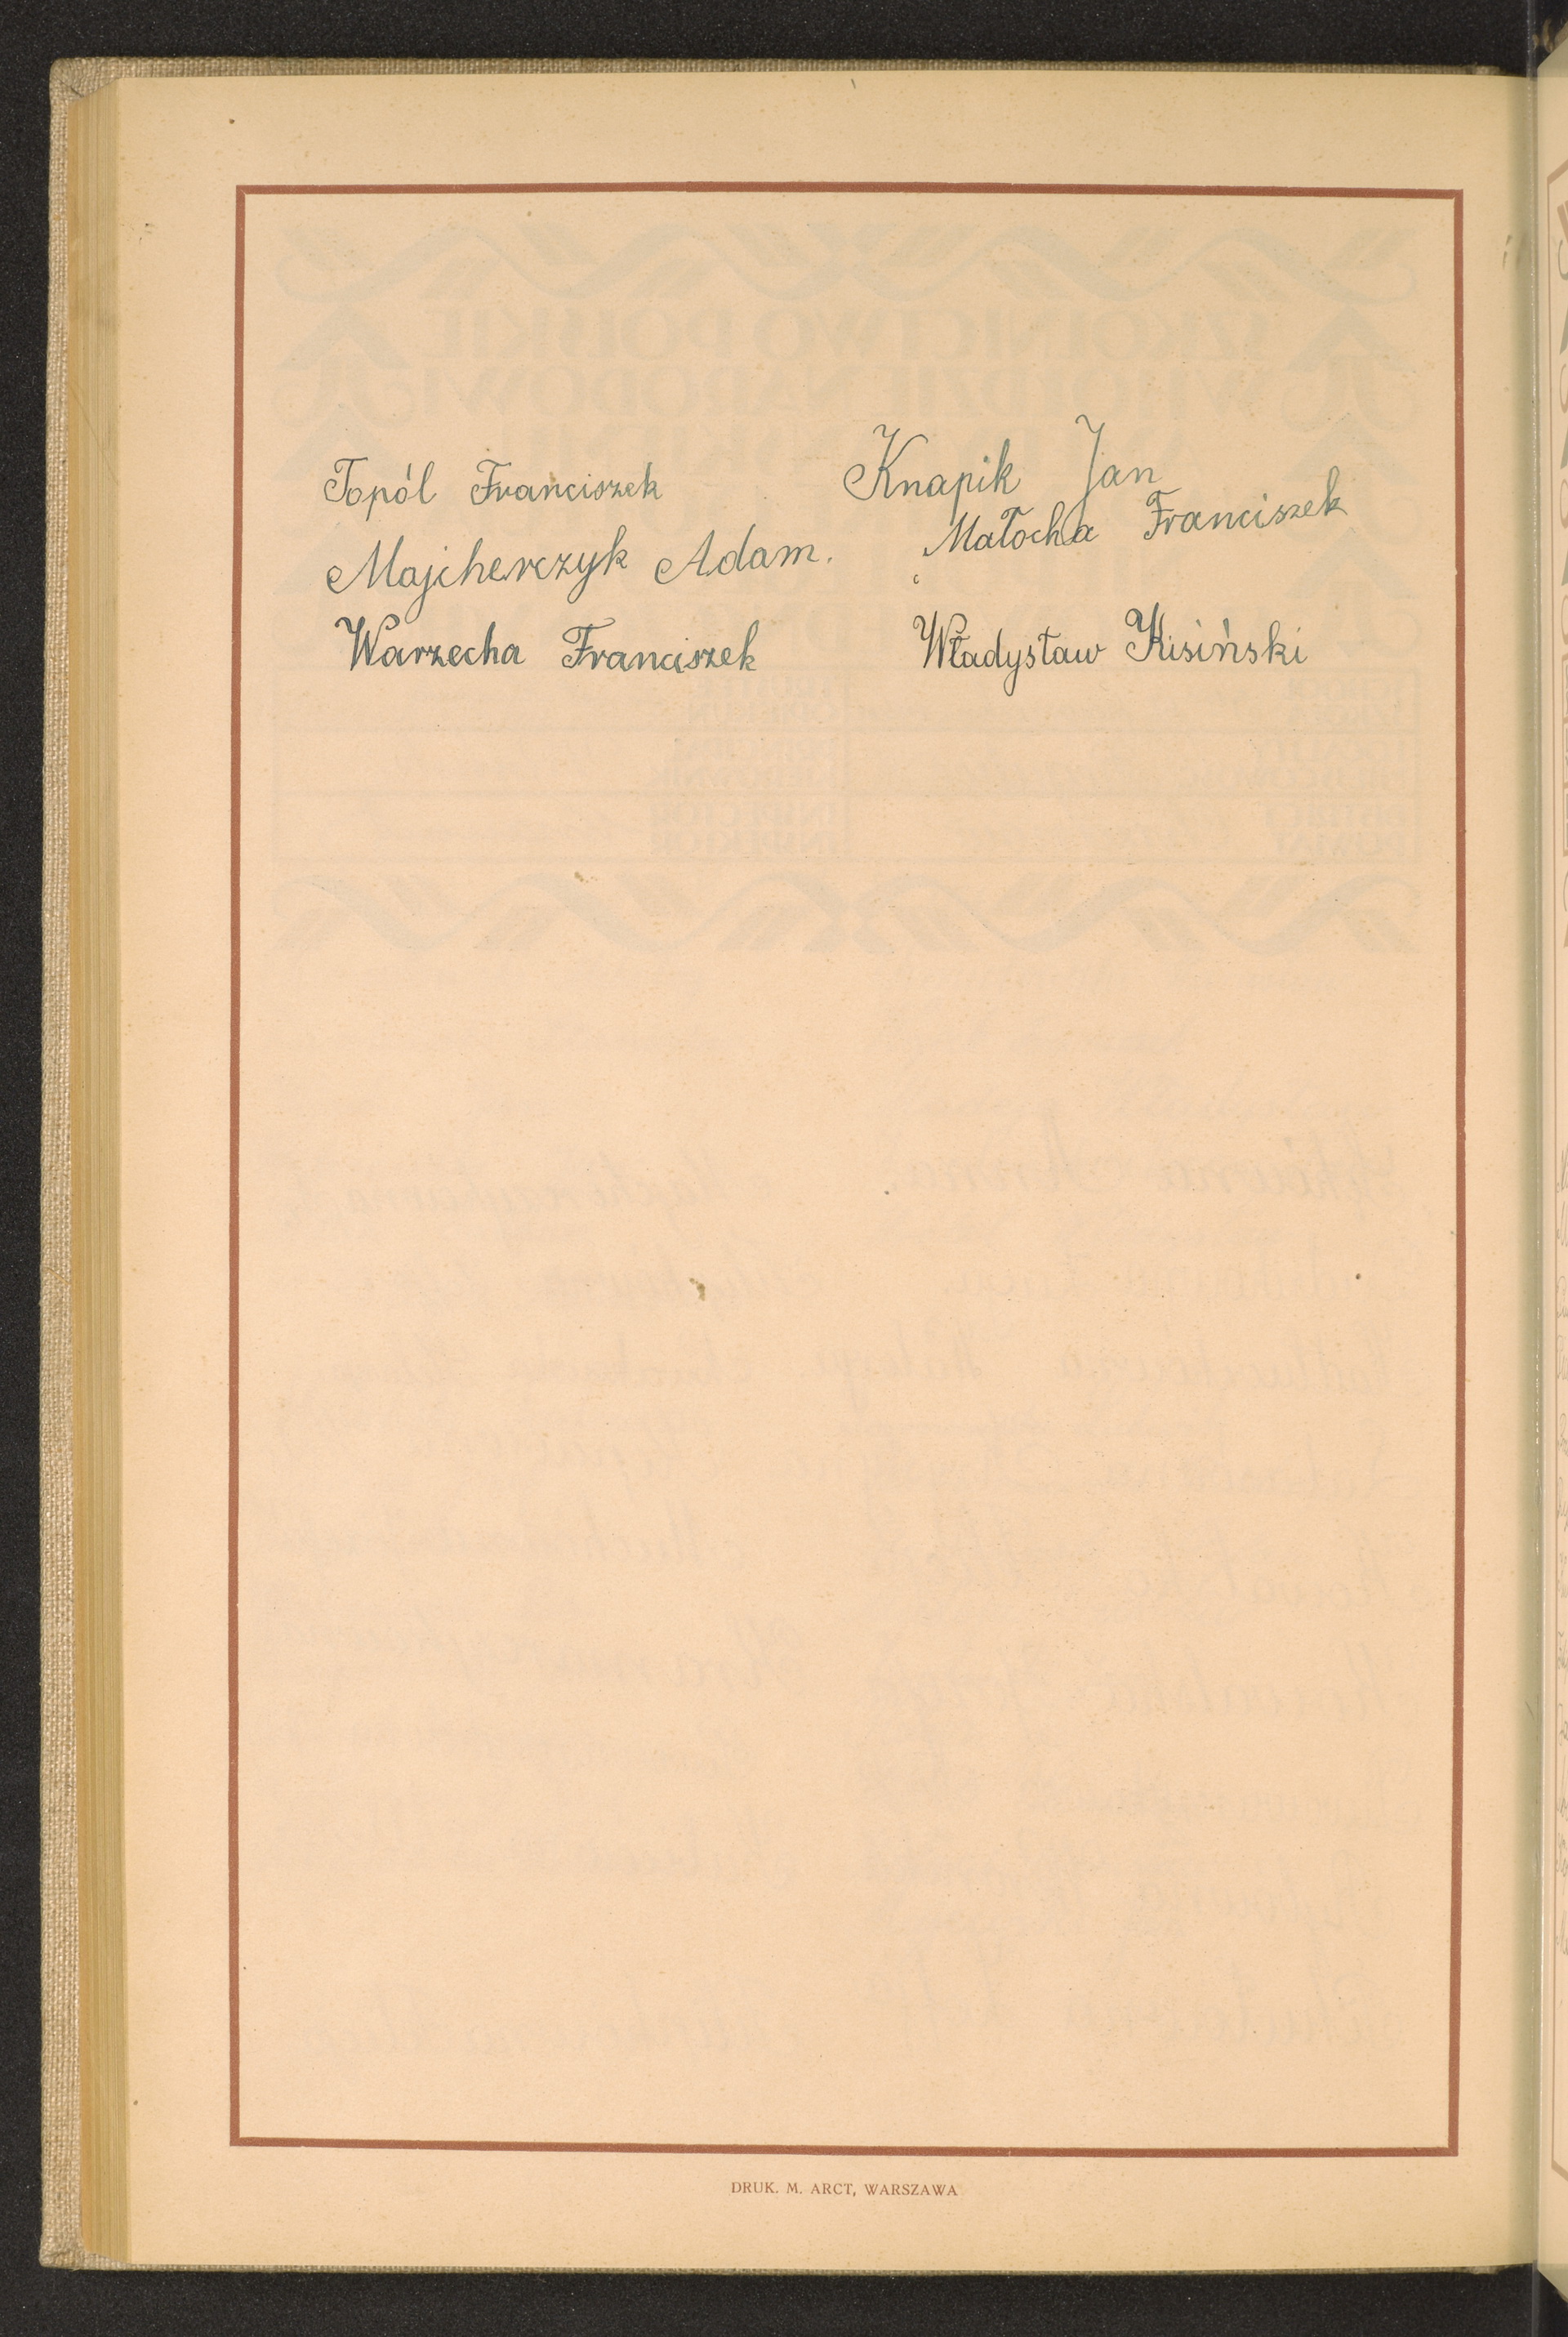 Topól Franciszek
Majcherczyk Adam.
Warzecha Franciszek
Knapik Jan
Małocha Franciszek
Władysław Kisiński
DRUK. M. ARCT, WARSZAWA